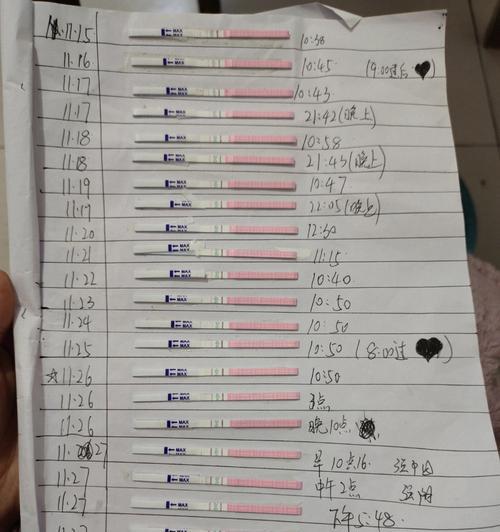 11.15 MAX 10:38
11.16 MAX 10:45 (9:00过后 ♥)
11.17 MAX 10:43
11.17 MAX 21:42(晚上)
11.18 MAX 10:58
11.18 MAX 21:43(晚上)
11.19 MAX 10:47
11.19 MAX 22:05(晚上)
11.20 MAX 12:30
11.21 MAX 11:15
11.22 MAX 10:40
11.23 MAX 10:50
11.24 MAX 10:50
11.25 MAX 10:50 (8:00过 ♥)
☆11.26 MAX 10:50
11.26 MAX 3点
11.26 MAX 晚10点
11.27 MAX 早10点16
11.27 MAX 中午2点
11.27 MAX 下午5:48
MAX